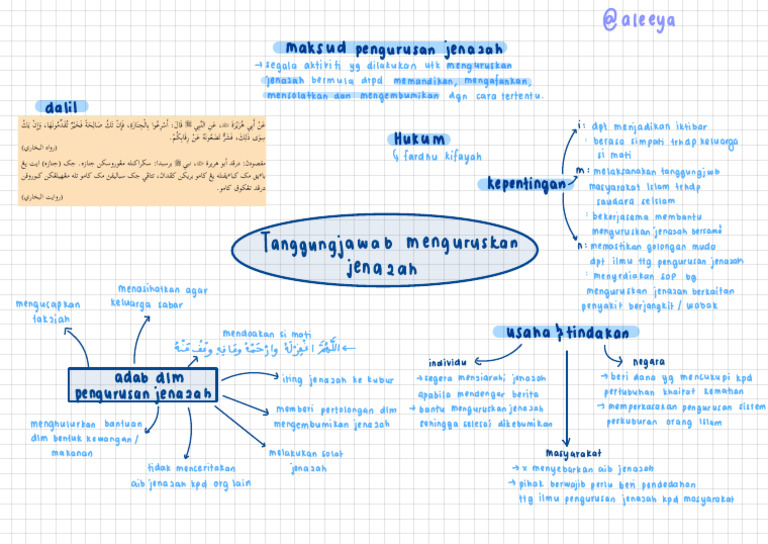 @aleeya
maksud pengurusan jenazah
→ segala aktiviti yg dilakukan utk menguruskan
jenazah bermula drpd memandikan, mengafankan,
mensolatkan dan mengembumikan dgn cara tertentu.
dalil
عَنْ أَبِي هُرَيْرَةَ، عَنِ النَّبِيِّ ﷺ قَالَ: أَسْرِعُوا بِالْجِنَازَةِ، فَإِنْ تَكُ صَالِحَةً فَخَيْرٌ تُقَدِّمُونَهَا، وَإِنْ يَكُ
سِوَى ذَلِكَ، فَشَرٌّ تَضَعُونَهُ عَنْ رِقَابِكُمْ.
(رواه البخاري)
مقصودن: درڤد أبو هريرة، نبي ﷺ برسبدا:
درڤد تڠكوق كامو.
(روايت البخاري)
Hukum
↳ fardhu kifayah
kepentingan
i: dpt menjadikan iktibar
: berasa simpati trhdp keluarga
si mati
m: melaksanakan tanggungjwb
masyarakat Islam trhdp
saudara seIslam
: bekerjasama membantu
menguruskan jenazah bersama
n: memastikan golongan muda
dpt ilmu ttg pengurusan jenazah
: menyediakan SOP bg
menguruskan jenazah berkaitan
penyakit berjangkit / wabak
Tanggungjawab menguruskan
jenazah
adab dlm
pengurusan jenazah
mengucapkan
takziah
menasihatkan agar
keluarga sabar
mendoakan si mati
iring jenazah ke kubur
memberi pertolongan dlm
mengembumikan jenazah
melakukan solat
jenazah
tidak menceritakan
aib jenazah kpd org lain
menghulurkan bantuan
dlm bentuk kewangan /
makanan
usaha & tindakan
individu
→ segera menziarahi jenazah
apabila mendengar berita
→ bantu menguruskan jenazah
sehingga selesai dikebumikan
masyarakat
→ x menyebarkan aib jenazah
→ pihak berwajib perlu beri pendedahan
ttg ilmu pengurusan jenazah kpd masyarakat
negara
→ beri dana yg mencukupi kpd
pertubuhan khairat kematian
→ memperkasakan pengurusan sistem
perkuburan orang Islam